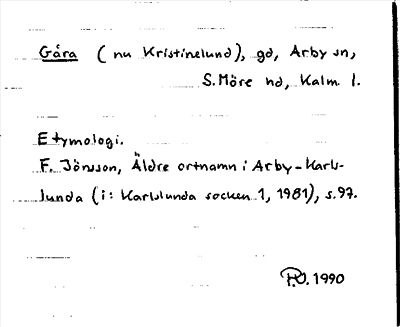 Gåra (nu Kristinelund), gd, Arby sn,
S. Möre hd, Kalm l.
Etymologi.
F. Jönsson, Äldre ortnamn i Arby-Karls-
lunda (i: Karlslunda socken 1, 1981), s. 97.
1990